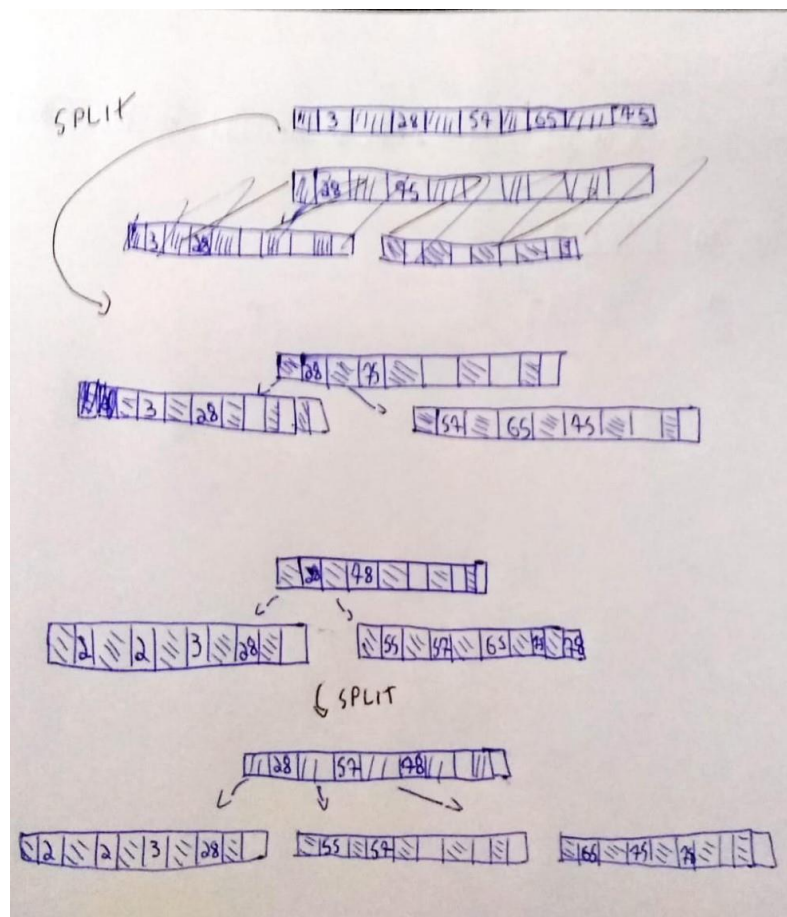 SPLIT
3 28 57 65 75
28 75
3 28
28 75
3 28
57 65 75
28 78
2 2 3 28
55 57 65 75 78
SPLIT
28 57 78
2 2 3 28
55 57
65 75 78